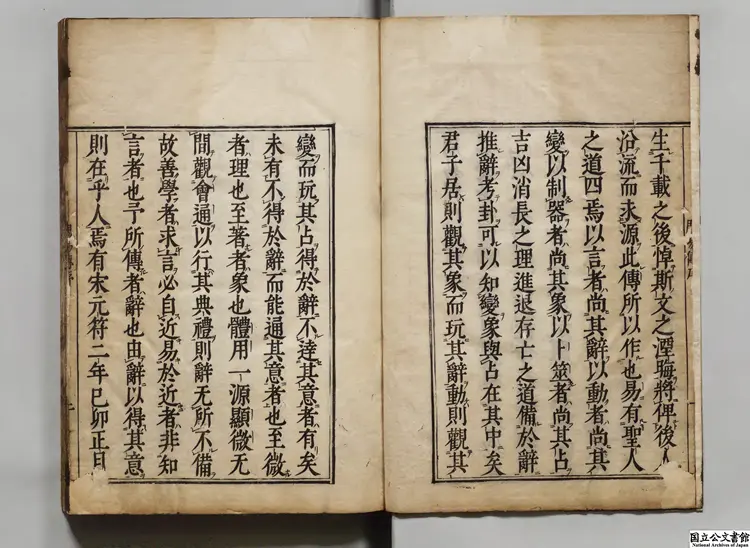 生千載之後悼斯文之湮晦將俾後人
沿流而求源此傳所以作也易有聖人
之道四焉以言者尚其辭以動者尚其
變以制器者尚其象以卜筮者尚其占
吉凶消長之理進退存亡之道備於辭
推辭考卦可以知變象與占在其中矣
君子居則觀其象而玩其辭動則觀其
變而玩其占得於辭不逹其意者有矣
未有不得於辭而能通其意者也至微
者理也至著者象也體用一源顯微无
間觀會通以行其典禮則辭无所不備
故善學者求言必自近易於近者非知
言者也予所傳者辭也由辭以得其意
則在乎人焉有宋元符二年己卯正月
国立公文書館
National Archives of Japan